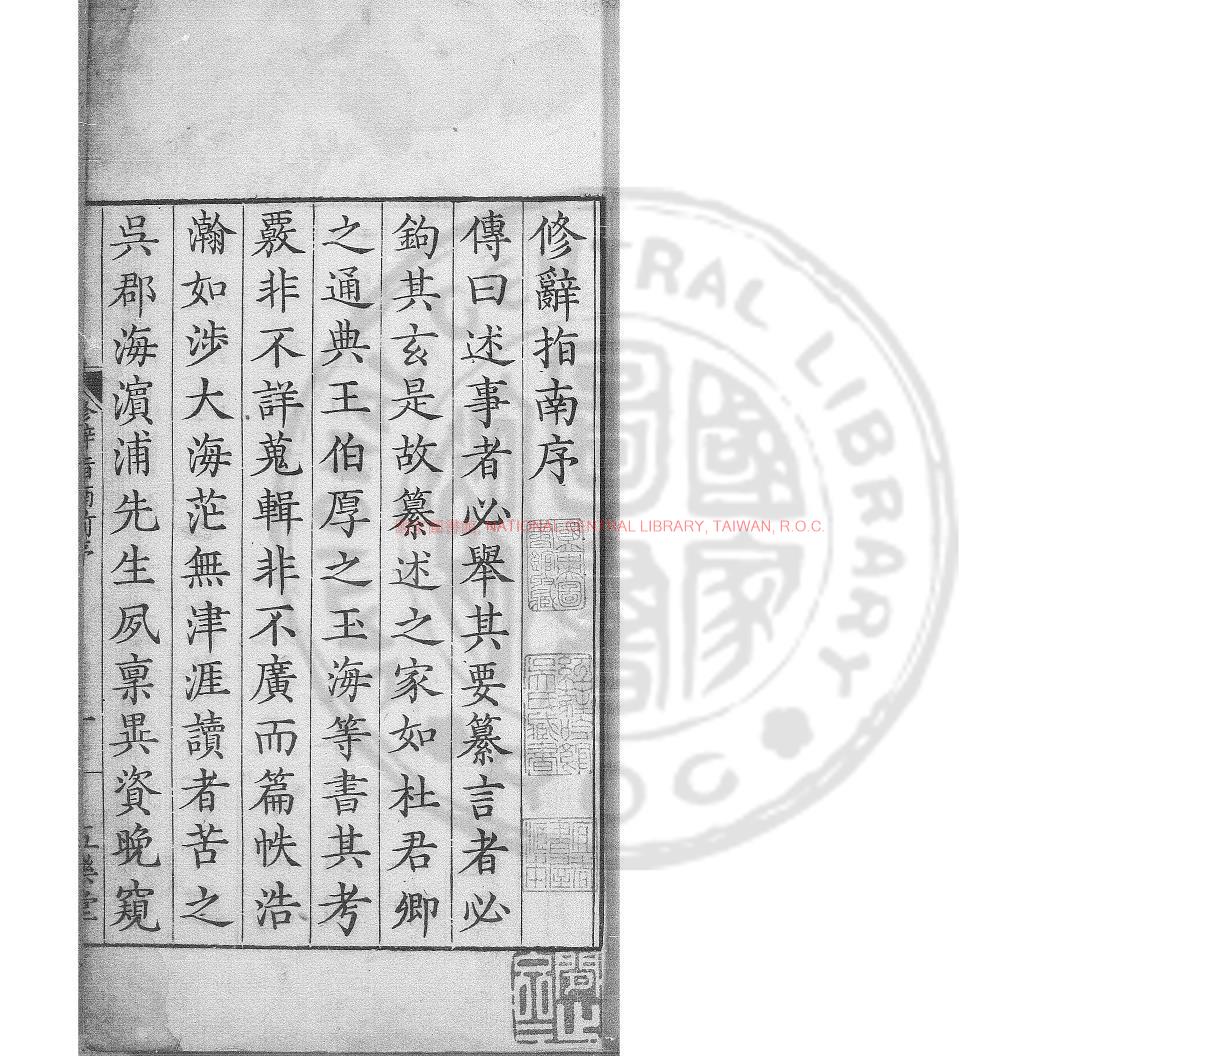 修辭指南序
傳曰述事者必舉其要纂言者必
鉤其玄是故纂述之家如杜君卿
之通典王伯厚之玉海等書其考
覈非不詳蒐輯非不廣而篇帙浩
瀚如涉大海茫無津涯讀者苦之
吳郡海濵浦先生夙稟異資晚窺
NATIONAL CENTRAL LIBRARY, TAIWAN, R.O.C.